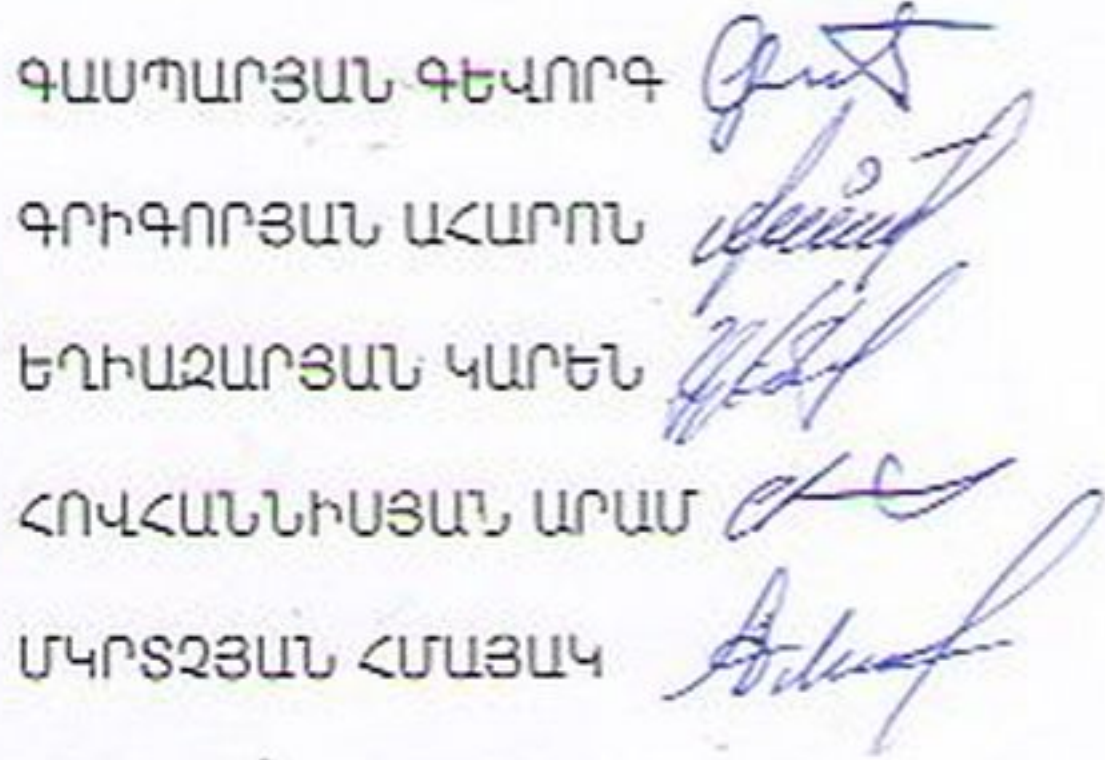 ԳԱՍՊԱՐՅԱՆ ԳԵՎՈՐԳ
ԳՐԻԳՈՐՅԱՆ ԱՀԱՐՈՆ
ԵՂԻԱԶԱՐՅԱՆ ԿԱՐԵՆ
ՀՈՎՀԱՆՆԻՍՅԱՆ ԱՐԱՄ
ՄԿՐՏՉՅԱՆ ՀՄԱՅԱԿ